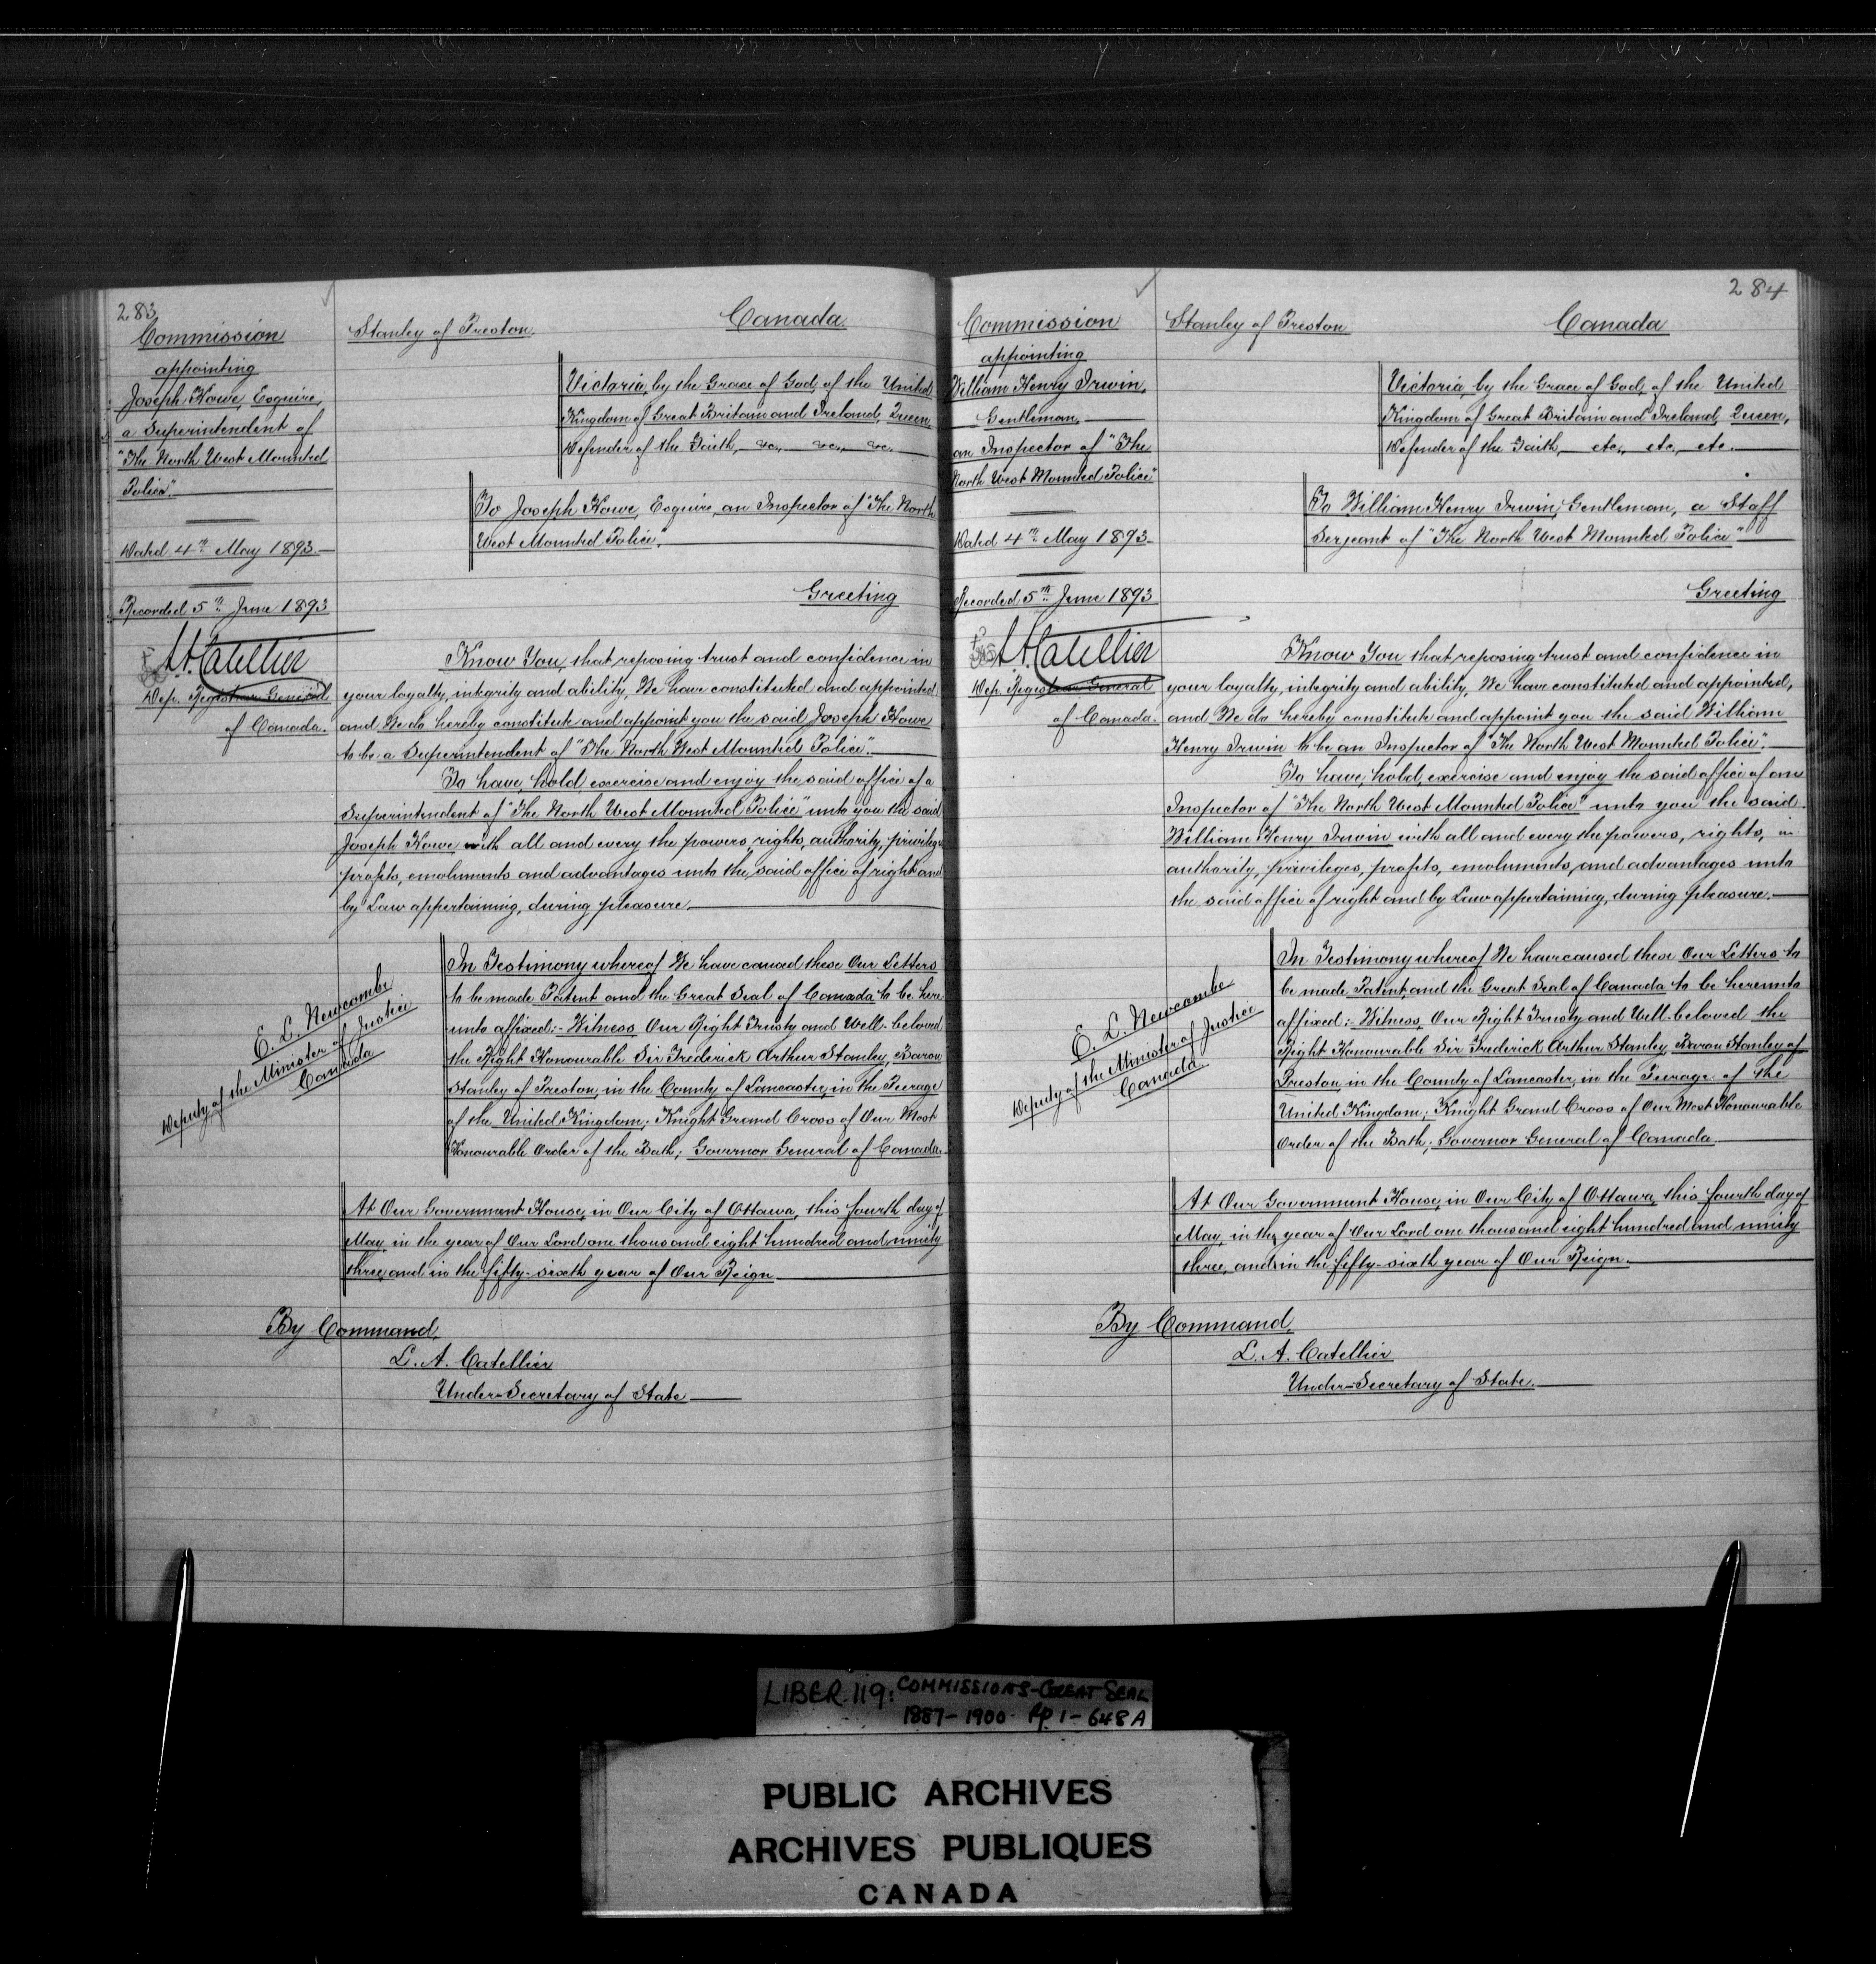 283
Commission
appointing
Joseph Howe, Esquire,
a Superintendent of
"The North West Mounted
Police".
Dated 4th May 1893.
Recorded 5th June 1893
L.A. Catellier
Dep. Registrar General
of Canada.
Stanley of Preston.
Canada.
Victoria, by the Grace of God, of the United
Kingdom of Great Britain and Ireland, Queen,
Defender of the Faith, &c., &c., &c.
To Joseph Howe, Esquire, an Inspector of "The North
West Mounted Police".
Greeting
Know You, that reposing trust and confidence in
your loyalty, integrity and ability, We have constituted and appointed
and We do hereby constitute and appoint you the said Joseph Howe
to be a Superintendent of "The North West Mounted Police".
To have, hold exercise and enjoy the said office of a
Superintendent of "The North West Mounted Police" unto you the said
Joseph Howe with all and every the powers, rights, authority, privileges
profits, emoluments and advantages unto the said office of right and
by Law appertaining, during pleasure.
E. L. Newcombe
Deputy of the Minister of Justice
Canada
In Testimony whereof We have caused these Our Letters
to be made Patent and the Great Seal of Canada to be here-
unto affixed:- Witness, Our Right Trusty and Well-beloved
the Right Honourable Sir Frederick Arthur Stanley, Baron
Stanley of Preston, in the County of Lancaster, in the Peerage
of the United Kingdom; Knight Grand Cross of Our Most
Honourable Order of the Bath; Governor General of Canada.
At Our Government House, in Our City of Ottawa, this fourth day of
May, in the year of Our Lord one thousand eight hundred and ninety
three, and in the fifty-sixth year of Our Reign.
By Command,
L. A. Catellier
Under-Secretary of State
284
Commission
appointing
William Henry Irwin,
Gentleman,
an Inspector of "The
North West Mounted Police"
Dated 4th May 1893.
Recorded 5th June 1893
L.A. Catellier
Dep. Registrar General
of Canada.
Stanley of Preston
Canada
Victoria, by the Grace of God, of the United
Kingdom of Great Britain and Ireland, Queen,
Defender of the Faith, etc., etc., etc.
To William Henry Irwin, Gentleman, a Staff
Serjeant of "The North West Mounted Police"
Greeting
Know You that, reposing trust and confidence in
your loyalty, integrity and ability, We have constituted and appointed,
and We do hereby constitute and appoint you the said William
Henry Irwin to be an Inspector of "The North West Mounted Police".
To have, hold, exercise and enjoy the said office of an
Inspector of "The North West Mounted Police" unto you the said
William Henry Irwin with all and every the powers, rights,
authority, privileges, profits, emoluments, and advantages unto
the said office of right and by Law appertaining, during pleasure.
E. L. Newcombe
Deputy of the Minister of Justice
Canada
In Testimony whereof We have caused these Our Letters to
be made Patent, and the Great Seal of Canada to be hereunto
affixed:- Witness, Our Right Trusty and Well-beloved the
Right Honourable Sir Frederick Arthur Stanley, Baron Stanley of
Preston, in the County of Lancaster, in the Peerage of the
United Kingdom; Knight Grand Cross of Our Most Honourable
Order of the Bath; Governor General of Canada.
At Our Government House, in Our City of Ottawa, this fourth day of
May, in the year of Our Lord one thousand eight hundred and ninety
three, and in the fifty-sixth year of Our Reign.
By Command,
L. A. Catellier
Under-Secretary of State.
LIBER. 119: COMMISSIONS-GREAT SEAL
1887-1900- Pp. 1-648A
PUBLIC ARCHIVES
ARCHIVES PUBLIQUES
CANADA